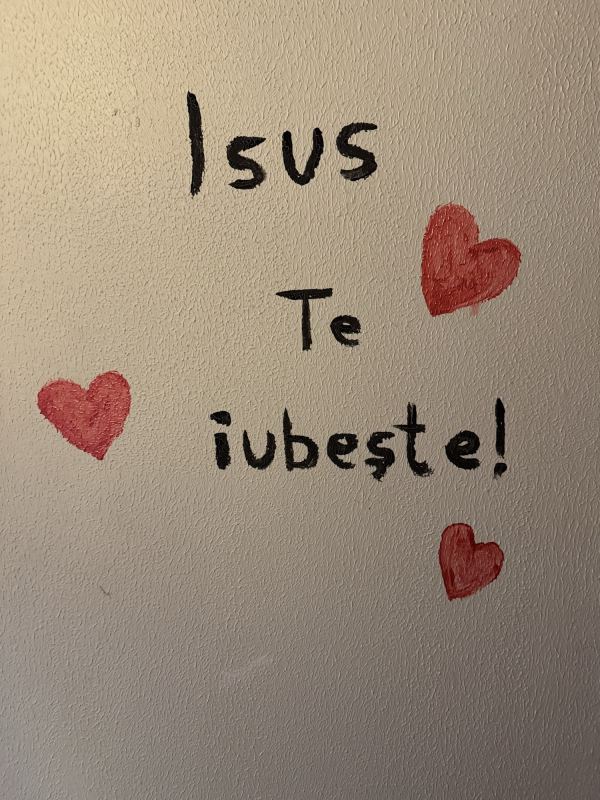 Isus
Te
iubește!